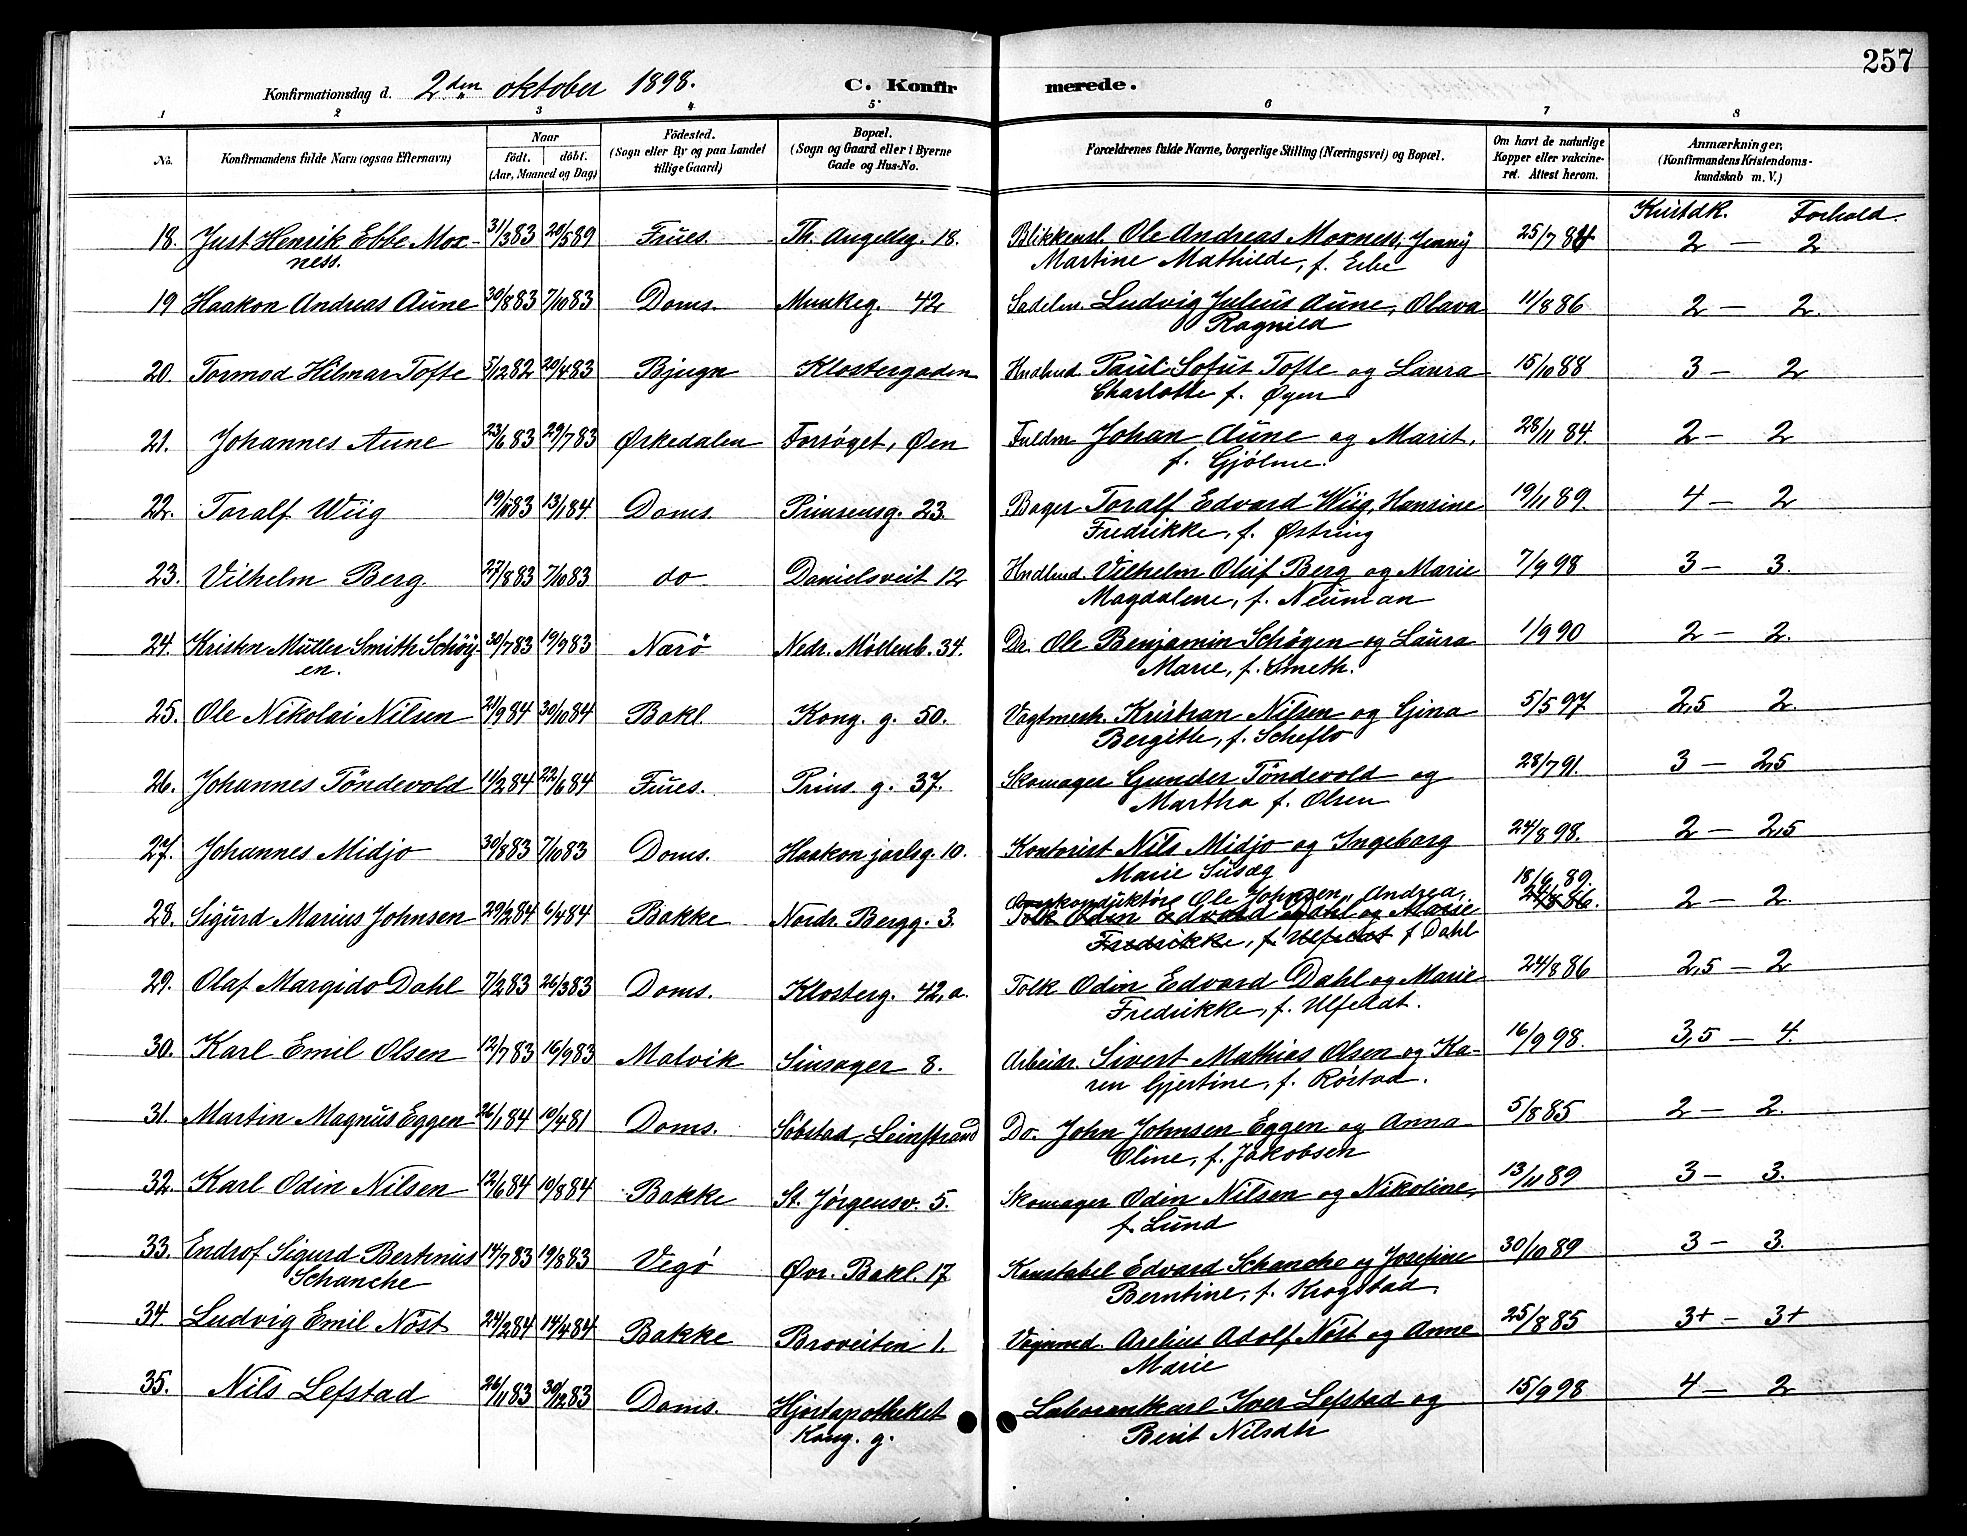 257
Konfirmationsdag d. 2den oktober 1898. C. Konfirmerede.
1 2 3 4 5 6 7 8
No. Konfirmandens fulde Navn (ogsaa Efternavn) Naar födt. döbt. (Aar, Maaned og Dag) Födested. (Sogn eller By og paa Landet tillige Gaard) Bopæl. (Sogn og Gaard eller i Byerne Gade og Hus-No. Forældrenes fulde Navne, borgerlige Stilling (Næringsvei) og Bopæl. Om havt de naturlige Kopper eller vakcineret. Attest herom. Anmærkninger. (Konfirmandens Kristendomskundskab m. V.)
Kristdk. Forhold.
18. Just Henrik Ebbe Mox- 31/3 83 20/5 89 Frues. Th. Angellsg. 18. Blikkensl. Ole Andreas Moxness, Jenny 25/7 84 2 — 2
ness. Martine Mathilde, f. Ebbe
19 Haakon Andreas Aune 30/8 83 7/10 83 Doms. Munkeg. 42 Sadelm. Ludvig Julius Aune, Olava 11/8 86 2 — 2.
Ragnild
20. Tormod Hilmar Tofte 5/12 82 29/4 83 Bjugn Klostergaden Paul Sofus Tofte og Laura 15/10 88 3 — 2
Charlotte f. Øyen
21. Johannes Aune 23/6 83 29/7 83 Ørkedalen Forsøget, Øen Fuldm Johan Aune og Marit, 28/11 84. 2 — 2
f. Gjölme.
22. Toralf Wiig 13/1 84 Doms. Prinsensg. 23. Bager Toralf Edvard Wiig, Hansine 19/11 89. 4 — 2
Fredrikke, f. Østring
23. Vilhelm Berg 27/8 83 7/10 83 do Danielsveit 12 Hndlend. Vilhelm Oluf Berg og Marie 7/9 98 3 — 3.
Magdalene, f. Neuman
24. Kristen Müller Smith Schöy- 30/7 83 19/9 83 Nærö Nedr. Møllenb. 34. Dr. Ole Benjamin Schøyen og Laura 1/9 90 2 — 2.
en. Marie, f. Smeth.
25. Ole Nikolai Nilsen 21/9 84 30/10 84 Bakl. Kong. g. 50. Vagtmest. Kristian Nilsen og Gina 5/5 97 2,5 2.
Bergitte, f. Scheflo
26. Johannes Töndevold 11/2 84 22/6 84 Frues. Prins. g. 37. Skomager Gunder Töndevold og 28/7 91. 3 — 2,5
Martha f. Olsen
27. Johannes Midjo 30/8 83 7/10 83 Doms. Haakon jarlsg. 10. Kontorist Nils Midjo og Ingeborg 24/8 98. 2 — 2,5
Marie Susæg
28. Sigurd Marius Johnsen 29/2 84 6/4 84 Bakke Nordr. Bergg. 3. Ole Johnsen, Andrea, 18/6 89. 2 — 2.
Tolk Odin Edvard Dahl og Marie 24/8 86.
Fredrikke, f. Ulfedat f Dahl
29. Olaf Margido Dahl 7/2 83 26/3 83 Doms. Klosterg. 42, a. Tolk Odin Edvard Dahl og Marie 24/8 86 2,5 — 2
Fredrikke, f. Ulfedat.
30. Karl Emil Olsen 12/7 83 16/9 83 Malvik Sinsager 8. Arbeidr. Sivert Mathias Olsen og Ka- 16/9 98. 3,5 — 4.
ren Gjertine, f. Röstad.
31. Martin Magnus Eggen 26/1 84 10/4 81 Doms. Söbstad, Leinstrand Do. John Johnsen Eggen og Anna 5/8 85 2 — 2.
Oline, f. Jakobsen
32. Karl Odin Nilsen 12/6 84 10/8 84 Bakke St. Jørgensv. 5. Skomager Odin Nilsen og Nikoline, 13/11 89 3 — 3.
f. Lund
33. Endrof Sigurd Bertinus 14/7 83 19/8 83 Vegö Øvr. Bakl. 17 Konstabel Edvard Schanche og Josefine 30/10 89 3 — 3.
Schanche Berntine, f. Krogstad.
34 Ludvig Emil Nöst 24/2 84 14/4 84 Bakke Broveiten 1. Vognmd. Arelius Adolf Nöst og Anne 25/8 85 3+ — 3+
Marie
35. Nils Lefstad 26/11 83 30/12 83 Doms. Hjortapotheket Laborantkarl Iver Lefstad og 15/9 98 4 — 2
Kong. g. Berit Nilsdtr